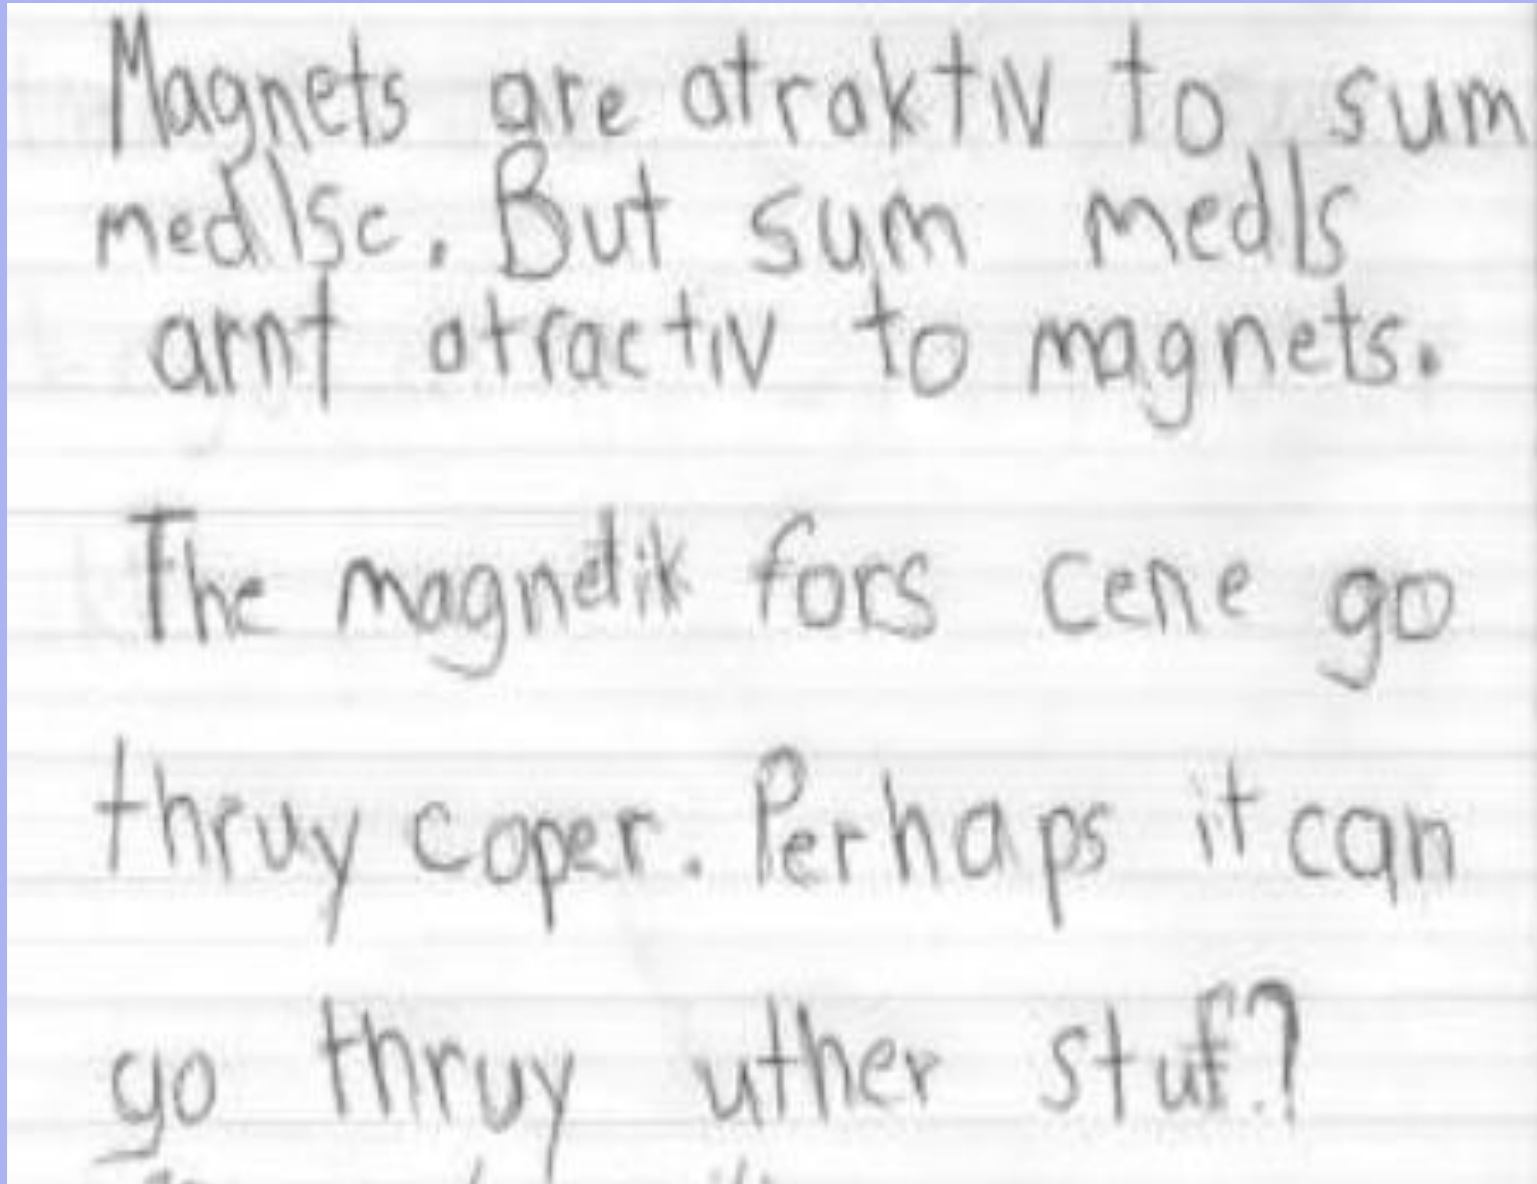 Magnets are atraktiv to sum
medlsc. But sum medls
arnt atractiv to magnets.
The magnetik fors cene go
thruy coper. Perhaps it can
go thruy uther stuf?